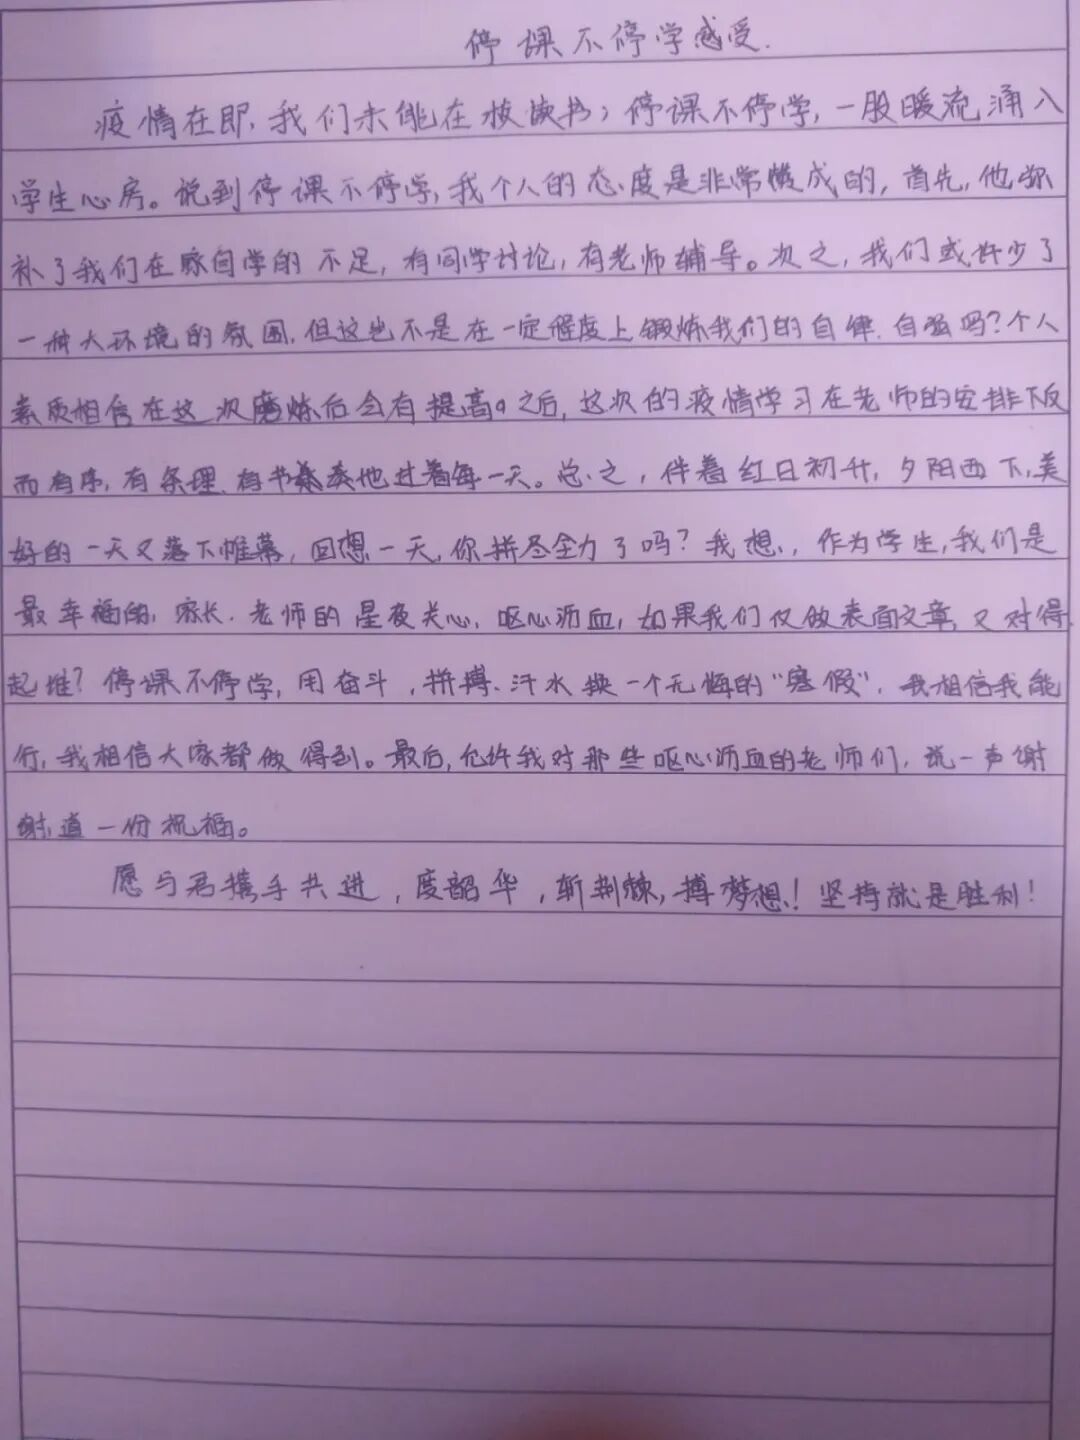 停课不停学感受.
疫情在即,我们未能在校读书;停课不停学,一股暖流涌入
学生心房。说到停课不停学,我个人的态度是非常赞成的,首先,他弥
补了我们在家自学的不足,有同学讨论,有老师辅导。次之,我们或许少了
一种大环境的氛围,但这也不是在一定程度上锻炼我们的自律、自强吗?个人
素质相信在这次磨炼后会有提高。之后,这次的疫情学习在老师的安排下反
而有序,有条理、有节奏地过着每一天。总之,伴着红日初升,夕阳西下,美
好的一天又落下帷幕,回想一天,你拼尽全力了吗?我想,作为学生,我们是
最幸福的,家长、老师的星夜关心、呕心沥血,如果我们仅做表面文章,又对得
起谁?停课不停学,用奋斗,拼搏、汗水换一个无悔的“寒假”,我相信我能
行,我相信大家都做得到。最后,允许我对那些呕心沥血的老师们,说一声谢
谢,道一份祝福。
愿与君携手共进,度韶华,斩荆棘,搏梦想!坚持就是胜利!